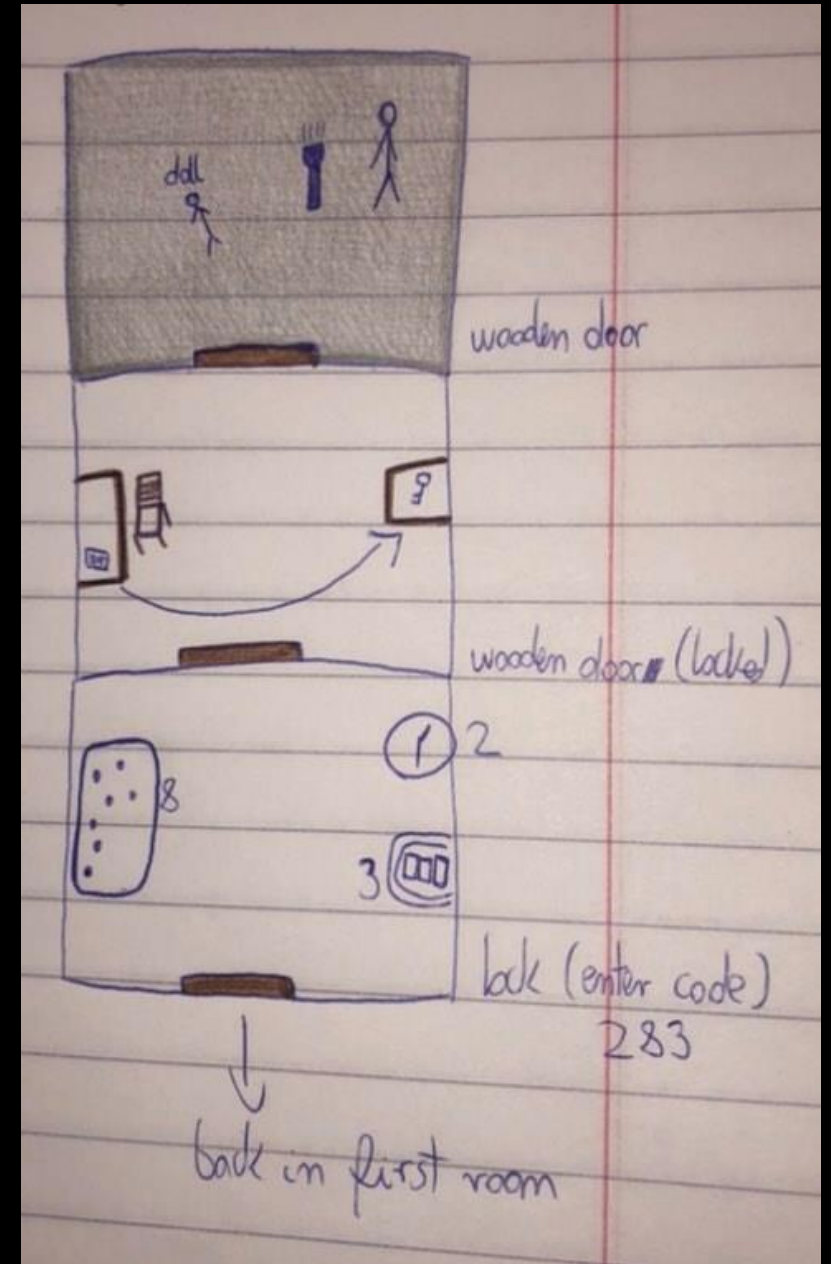 ddl
wooden door
wooden door (locked)
2
8
3
lock (enter code)
283
back in first room